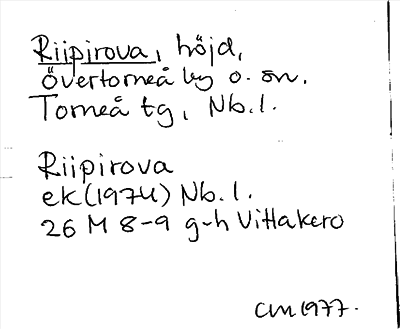 Riipirova, höjd,
Övertorneå by o. sn.
Torneå tg, Nb.l.
Riipirova
ek (1974) Nb.l.
26 M 8-9 g-h Vittakero
CM 1977.